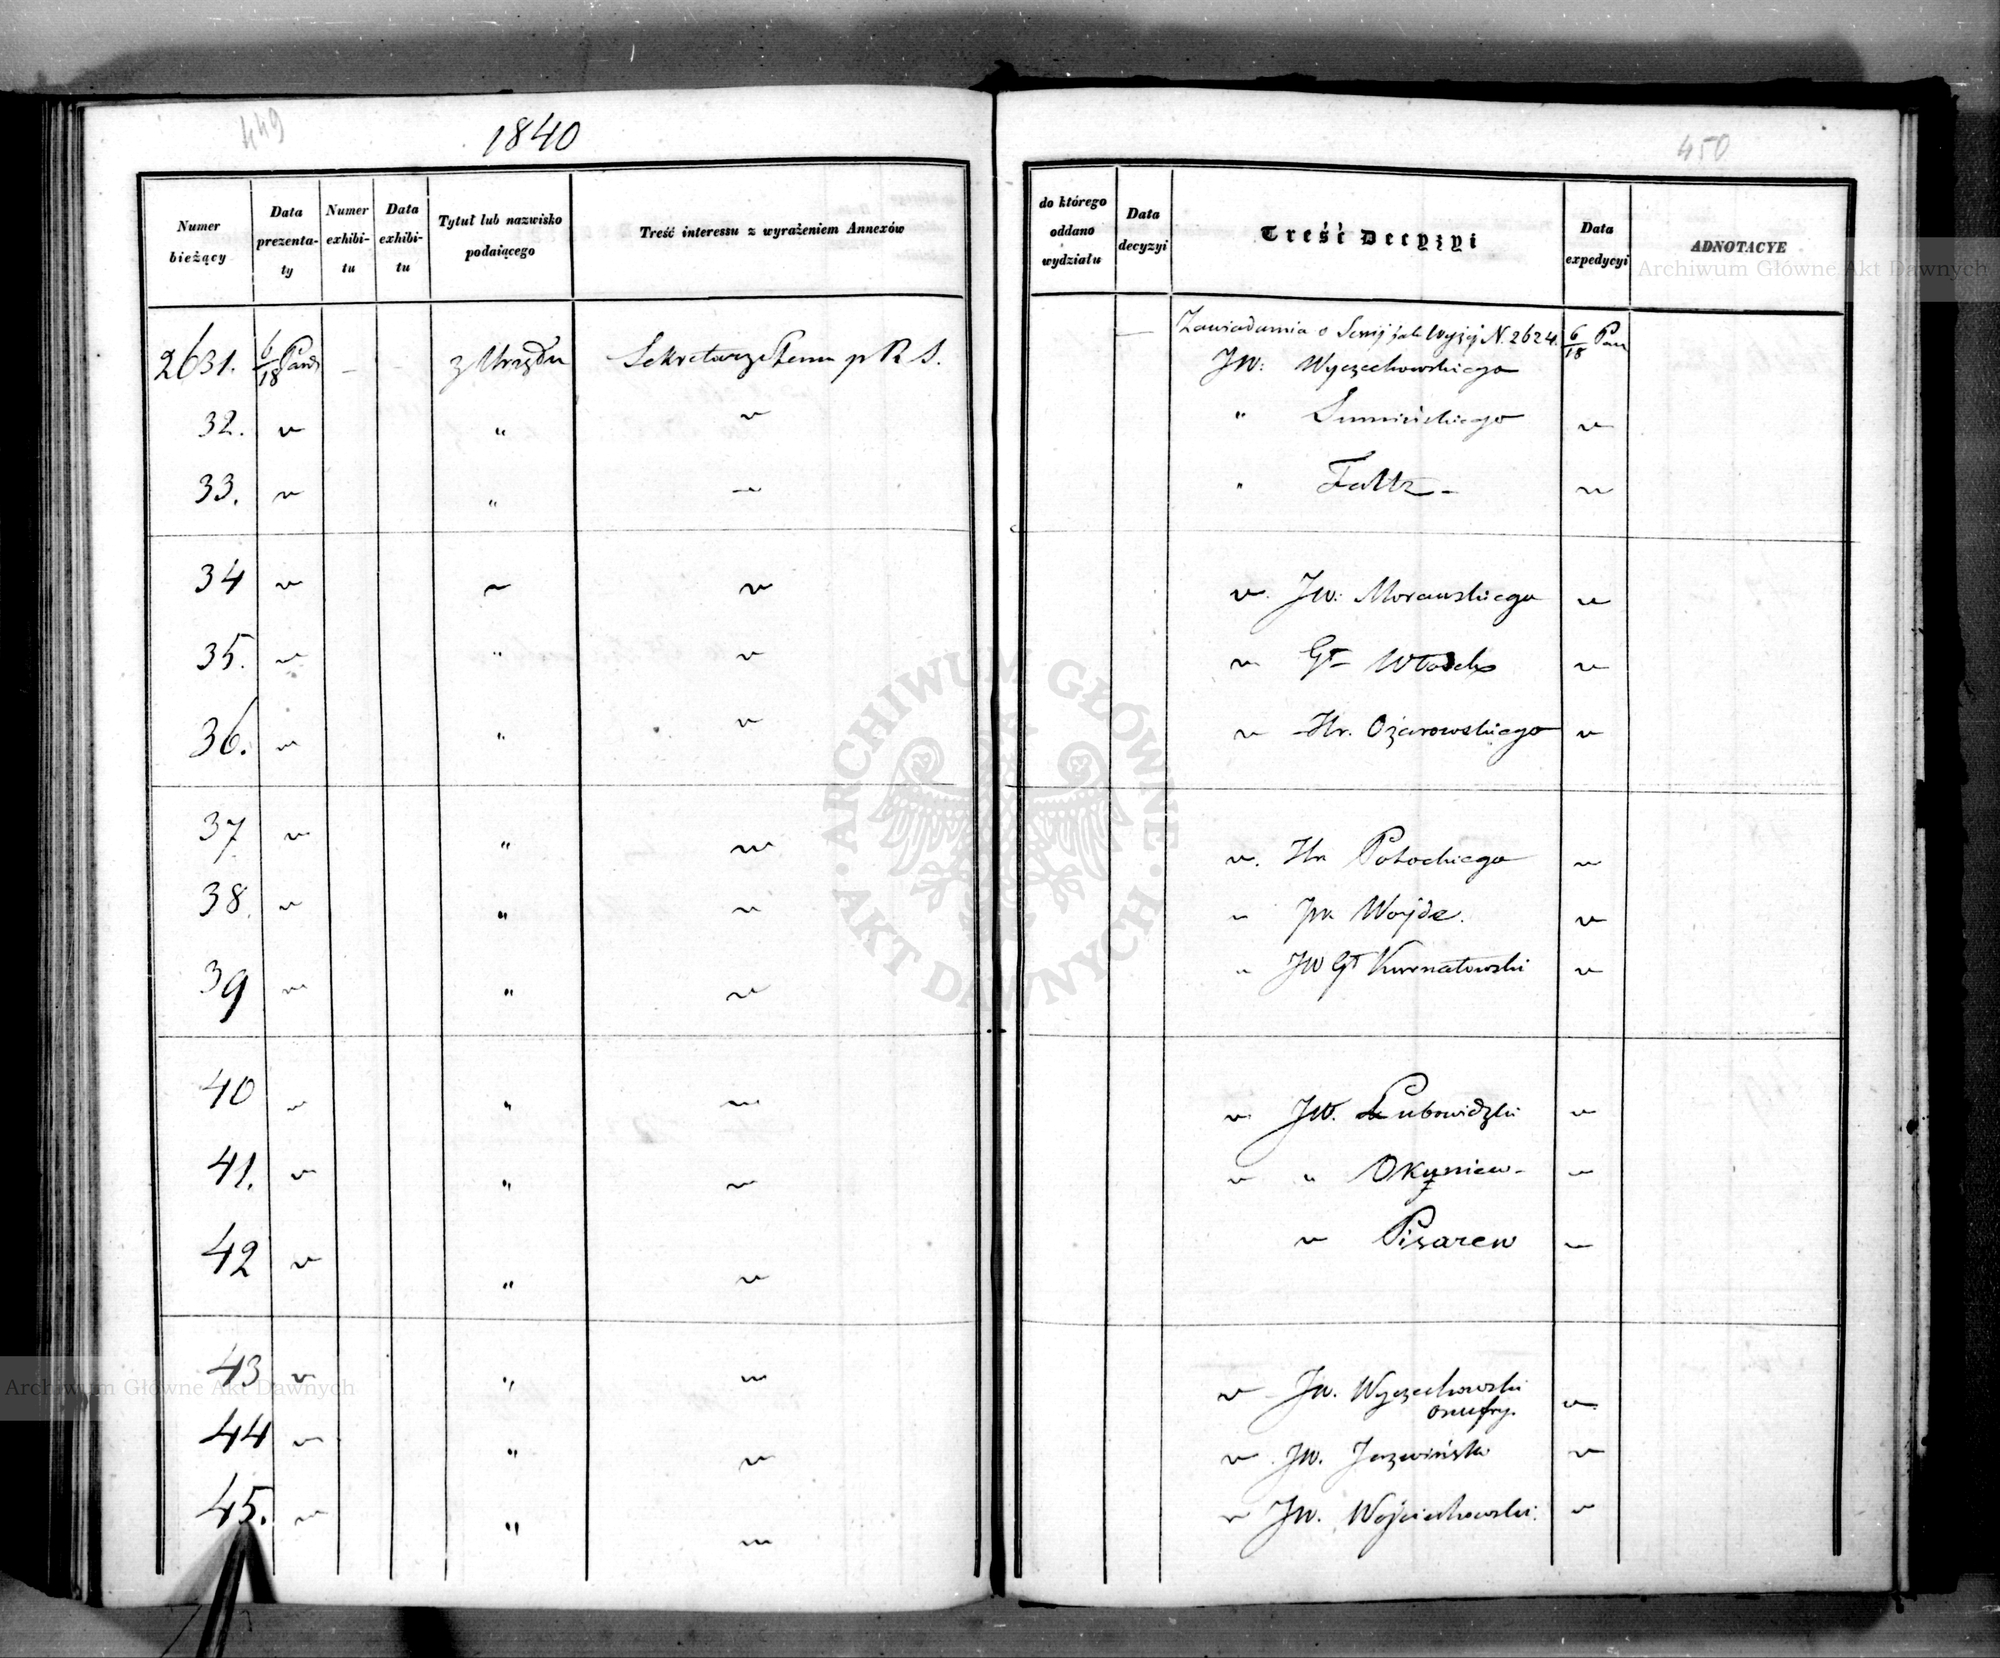 449
1840
Numer bieżący
Data prezenta-ty
Numer exhibi-tu
Data exhibi-tu
Tytuł lub nazwisko podaiącego
Treść interessu z wyrażeniem Annexów
2631. 6/18 Paźd - - z Urzędu Sekretarz Stanu p R. S.
32. " " "
33. " " "
34 " " "
35. " " "
36. " " "
37 " " "
38. " " "
39 " " "
40 " " "
41. " " "
42 " " "
43 " " "
44 " " "
45. " " "
450
do którego oddano wydziału
Data decyzyi
Treść Decyzyi
Data expedycyi
ADNOTACYE
— Zawiadamia o Sessij jak wyżej N. 2624. 6/18 Paź
JW: Wyczechowskiego
" Sumińskiego "
" Faltz - "
" JW: Morawskiego "
" Gł Włodek "
" Hr. Ożarowskiego "
". Hr Potockiego "
" JW Woyde. "
" JW Gł Kurnatowski "
" JW. Lubowidzki "
" " Okuniew- "
" Pisarew "
" JW. Wyczechowski
Onufry. "
" JW. Jerzwińsk "
" JW. Wojciechowski. "
Archiwum Główne Akt Dawnych
ARCHIWUM GŁÓWNE · AKT DAWNYCH ·
Archiwum Główne Akt Dawnych